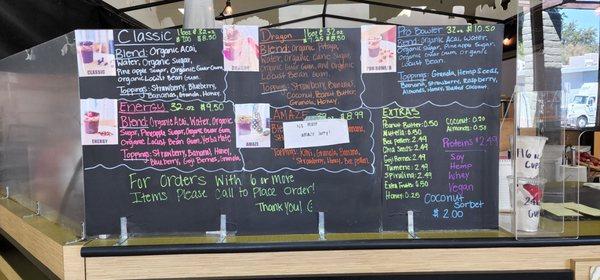 Classic 16oz & 32oz
$7.00 $8.50
Blend: Organic Acai,
Water, Organic Cane Sugar,
Pineapple Sugar, Organic Guar Gum,
Organic Locust Bean Gum.
Toppings: Strawberry, Blueberry,
Bananas, Granola, Honey
CLASSIC
Dragon 16oz & 32oz
$7.25 $8.50
Blend: Organic Pitaya,
Water, Organic Cane Sugar,
Organic Guar Gum, and Organic
Locust Bean Gum.
Toppings: Strawberry, Bananas,
Coconut, Peanut Butter
Granola, Honey
Pro Bowler 32oz $10.50
Blend: Organic Acai, Water,
Organic Sugar, Pineapple Sugar,
Organic Guar Gum, Organic
Locust Bean.
Toppings: Granola, Hemp Seeds,
Banana, Strawberry, Raspberry,
Almonds, Honey
PRO BOWLER
Energy 32oz $9.50
Blend: Organic Acai, Water, Organic
Sugar, Pineapple Sugar, Organic Guar
Gum, Organic Locust Bean Gum,
Toppings: Strawberry, Banana, Granola, Honey
Blueberry, Goji Berries, Granola
ENERGY
AMAZE
$8.99
Toppings: Kiwi, Granola, Banana,
Strawberry, Honey, Bee Pollen
AMAZE
EXTRAS
Peanut Butter 0.50
Nutella 0.50
Bee Pollen 2.49
Chia Seeds 2.49
Goji Berries 2.49
Turmeric 2.49
Spirulina 2.49
Extra Fruits 0.50
Honey 0.25
Coconut 0.20
Almonds 0.50
Proteins $2.49
Soy
Hemp
Whey
Vegan
Coconut
Sorbet
$2.00
For Orders With 6 or more
Items Please Call to Place Order!
Thank You!
16 oz